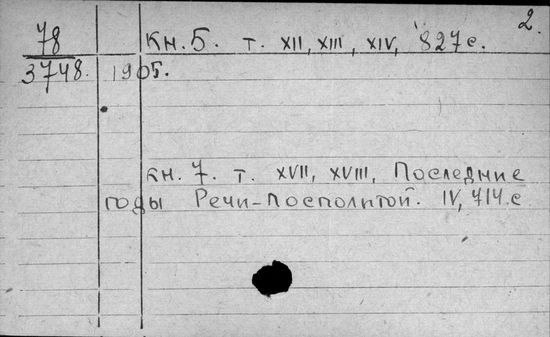 2.
78 Кн. 5. т. XII, XIII, XIV, 827 с.
3748. 1905.
кн. 7. т. XVII, XVIII, Последние
годы Речи-Посполитой. IV, 714.с